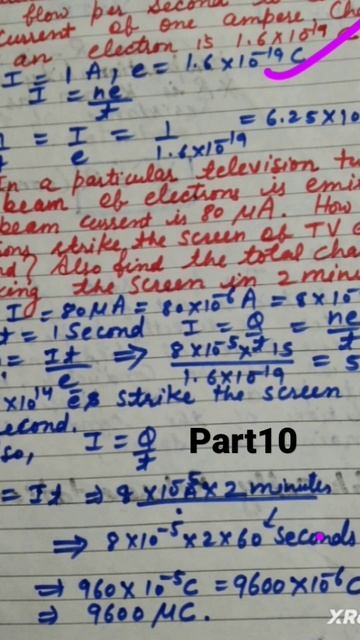 flow per second
current of one ampere Ch
an electron is 1.6×10⁻¹⁹ C
I = 1 A, e = 1.6×10⁻¹⁹ C
I = ne/t
= I/e = 1/1.6×10⁻¹⁹ = 6.25×10
In a particular television tu
beam of electrons is emi
beam current is 80 μA. How
ons strike the screen of TV
nd? Also find the total cha
king the screen in 2 minu
I = 80μA = 80×10⁻⁶ A = 8×10⁻
t = 1 Second I = Q/t = ne/t
= It/e ⇒ 8×10⁻⁵×1s/1.6×10⁻¹⁹ = 5
×10¹⁴ e's strike the screen
econd.
so, I = Q/t
Part10
= It ⇒ 8×10⁻⁵A×2 minutes
⇒ 8×10⁻⁵×2×60 seconds
⇒ 960×10⁻⁵C = 9600×10⁻⁶C
⇒ 9600 μC.
XRe